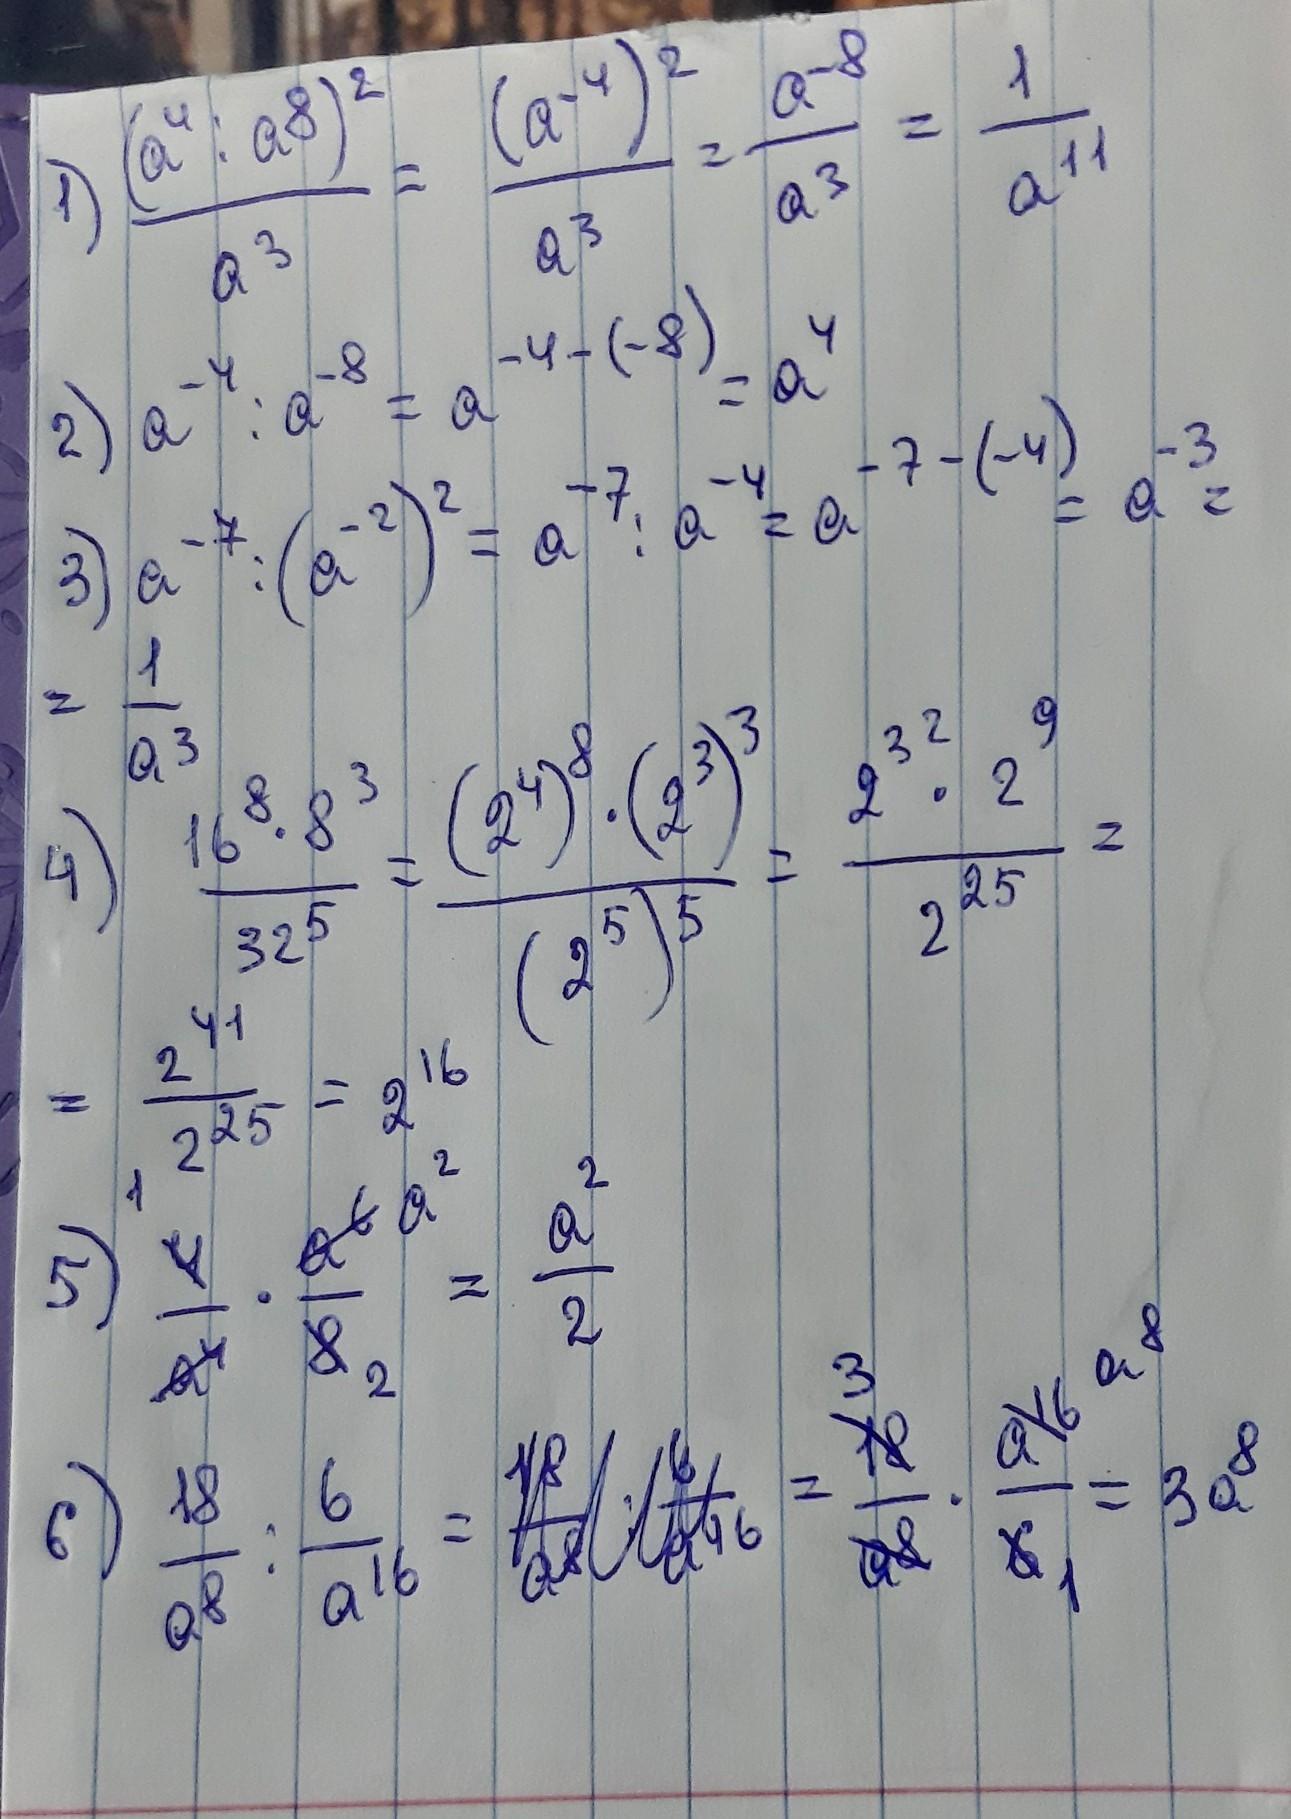 1) (a⁴ : a⁸)² / a³ = (a⁻⁴)² / a³ = a⁻⁸ / a³ = 1 / a¹¹
2) a⁻⁴ : a⁻⁸ = a⁻⁴⁻⁽⁻⁸⁾ = a⁴
3) a⁻⁷ : (a⁻²)² = a⁻⁷ : a⁻⁴ = a⁻⁷⁻⁽⁻⁴⁾ = a⁻³ =
= 1 / a³
4) 16⁸ · 8³ / 32⁵ = (2⁴)⁸ · (2³)³ / (2⁵)⁵ = 2³² · 2⁹ / 2²⁵ =
= 2⁴¹ / 2²⁵ = 2¹⁶
5) 1 4 / a⁴ · a⁶ a² / 8 2 = a² / 2
6) 18 / a⁸ : 6 / a¹⁶ = 18 / a⁸ : 6 / a¹⁶ = 3 18 / a⁸ · a¹⁶ a⁸ / 6 1 = 3a⁸